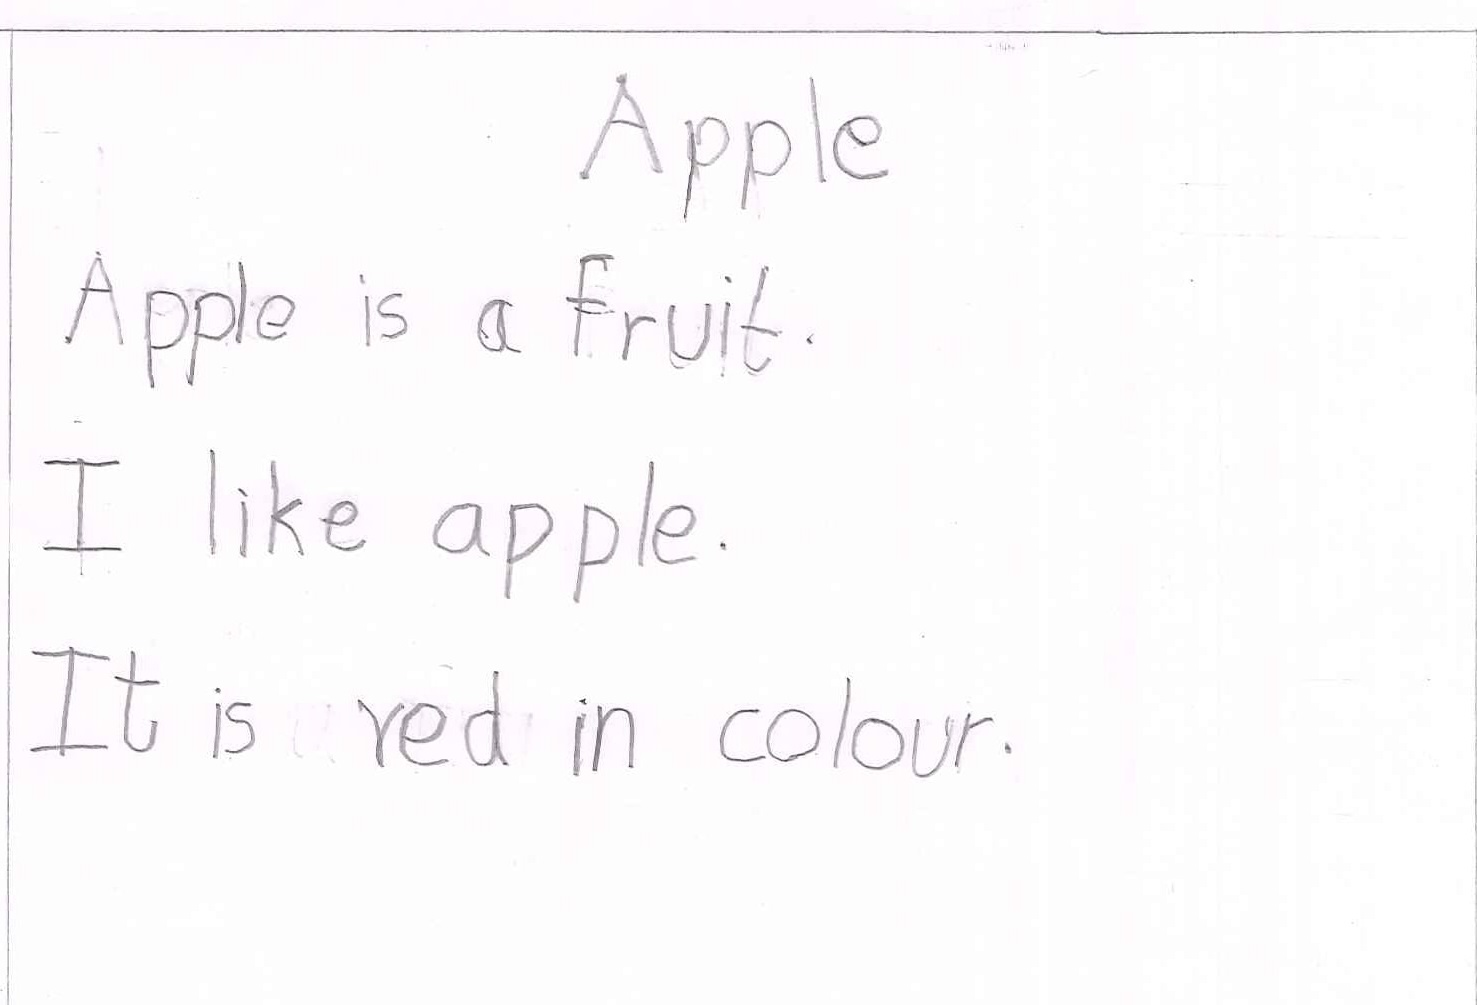 Apple
Apple is a fruit.
I like apple.
It is red in colour.